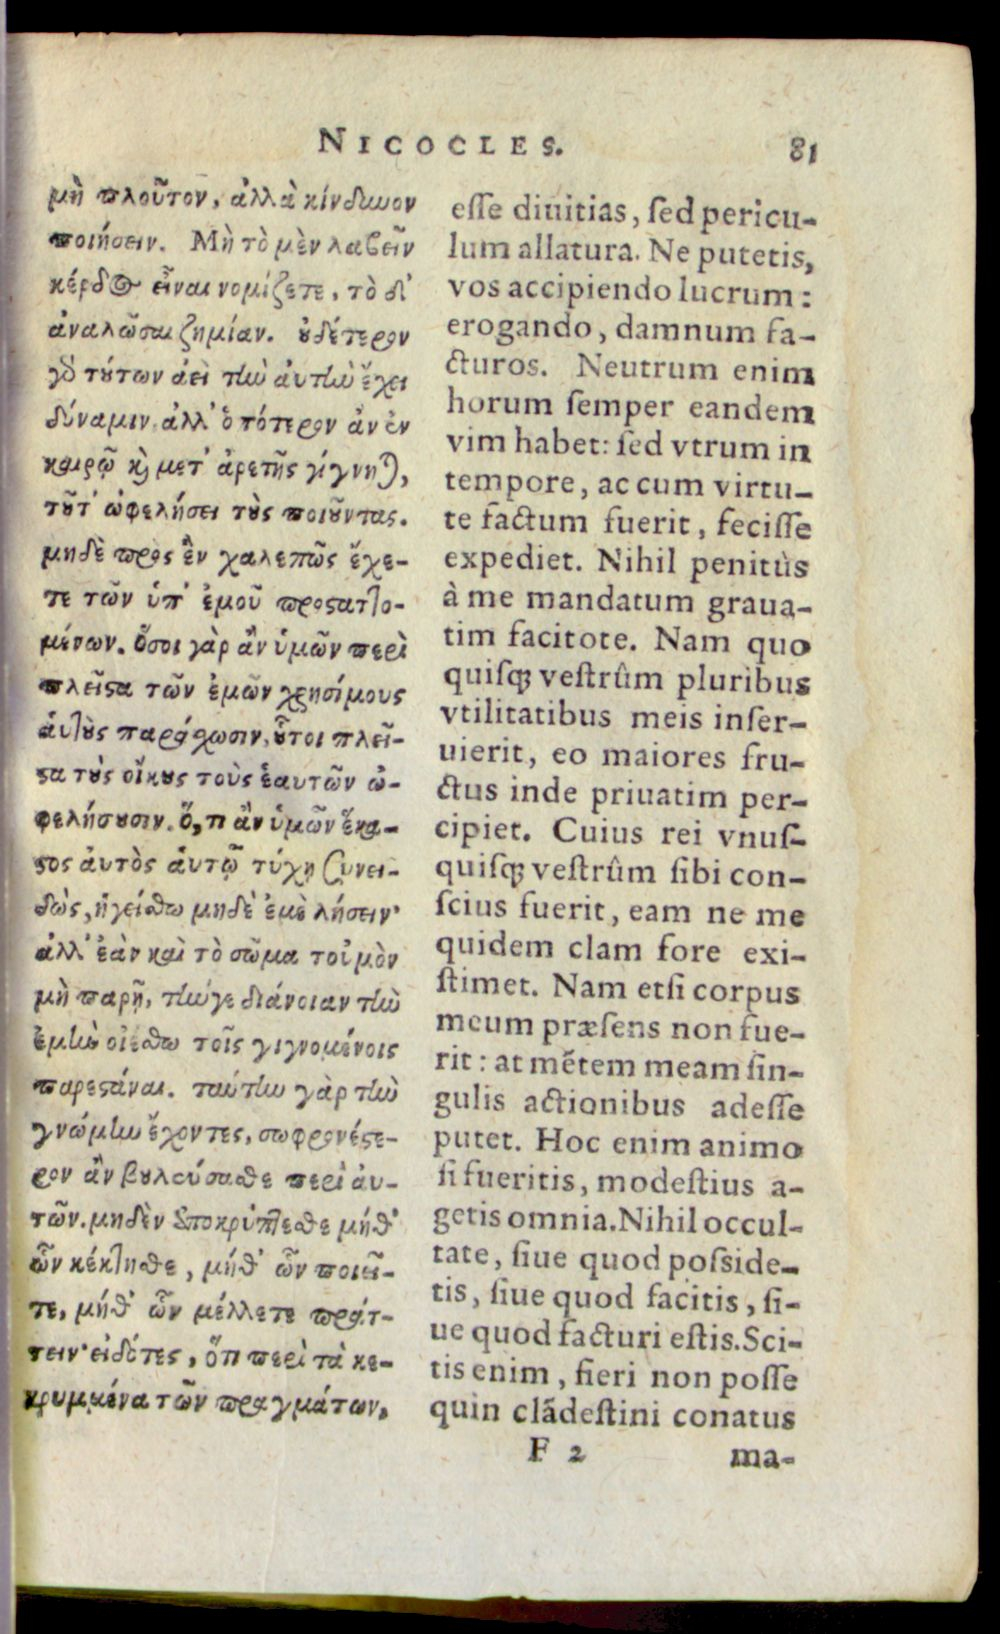 NICOCLES. 81
μὴ πλοῦτον, ἀλλὰ κίνδυνον
ποιήσειν. Μὴ τὸ μὲν λαβεῖν
κέρδος εἶναι νομίζετε, τὸ δ'
ἀναλῶσαι ζημίαν. ȣδέτερον
γὸ τȣ́των ἀεὶ τὴν ἀυτὴν ἔχει
δύναμιν, ἀλλ' ὁπότερον ἀν ἐν
καιρῷ κὶ μετ' ἀρετῆς γίγνηται,
τȣ͂τ' ὠφελήσει τὺς ποιȣ͂ντας.
μηδὲ πρὸς ἓν χαλεπῶς ἔχε-
τε τῶν ὑπ' ἐμοῦ προσατλο-
μένων. Ὅσοι γὰρ ἂν ὑμῶν περὶ
πλεῖστα τῶν ἐμῶν χρησίμους
ἁυτȣ̀ς παράχωσιν, ȣ̓͂τοι πλεῖ-
στα τȣ̀ς οἴκȣς τοὺς ἑαυτῶν ὠ-
φελήσȣσιν. ὅ, τι ἂν ὑμῶν ἕκα-
στος ἀυτὸς ἁυτῷ τύχῃ συνει-
δὼς, ἡγείσθω μηδὲ ἐμὲ λήσειν·
ἀλλ' ἐὰν καὶ τὸ σῶμα τοὐμὸν
μὴ παρῇ, τήν γε διάνοιαν τὴν
ἐμὴν οἰέσθω τοῖς γιγνομένοις
παρεστάναι. ταύτην γὰρ τὴν
γνώμην ἔχοντες, σωφρονέστε-
ρον ἂν βȣλεύσασθε περὶ ἁυ-
τῶν. μηδὲν ἀποκρύπτεσθε μήθ'
ὧν κέκτησθε, μήθ' ὧν ποιεῖ-
τε, μήθ' ὧν μέλλετε πράτ-
τειν· εἰδότες, ὅτι περὶ τὰ κε-
κρυμμένα τῶν πραγμάτων,
esse diuitias, sed pericu-
lum allatura. Ne putetis,
vos accipiendo lucrum:
erogando, damnum fa-
cturos. Neutrum enim
horum semper eandem
vim habet: sed vtrum in
tempore, ac cum virtu-
te factum fuerit, fecisse
expediet. Nihil penitùs
à me mandatum graua-
tim facitote. Nam quo
quisq; vestrûm pluribus
vtilitatibus meis inser-
uierit, eo maiores fru-
ctus inde priuatim per-
cipiet. Cuius rei vnus-
quisq; vestrûm sibi con-
scius fuerit, eam ne me
quidem clam fore exi-
stimet. Nam etsi corpus
meum præsens non fue-
rit: at mẽtem meam sin-
gulis actionibus adesse
putet. Hoc enim animo
si fueritis, modestius a-
getis omnia. Nihil occul-
tate, siue quod posside-
tis, siue quod facitis, si-
ue quod facturi estis. Sci-
tis enim, fieri non posse
quin clãdestini conatus
F 2 ma-